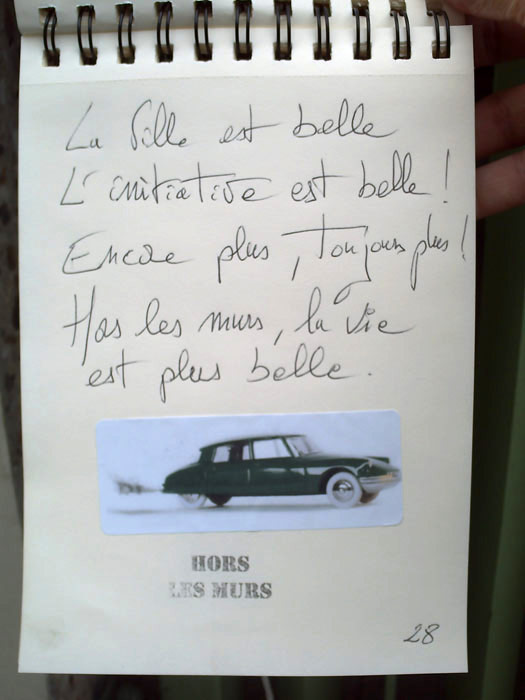 La Ville est belle
L'initiative est belle !
Encore plus, toujours plus !
Hors les murs, la vie
est plus belle.
HORS
LES MURS
28